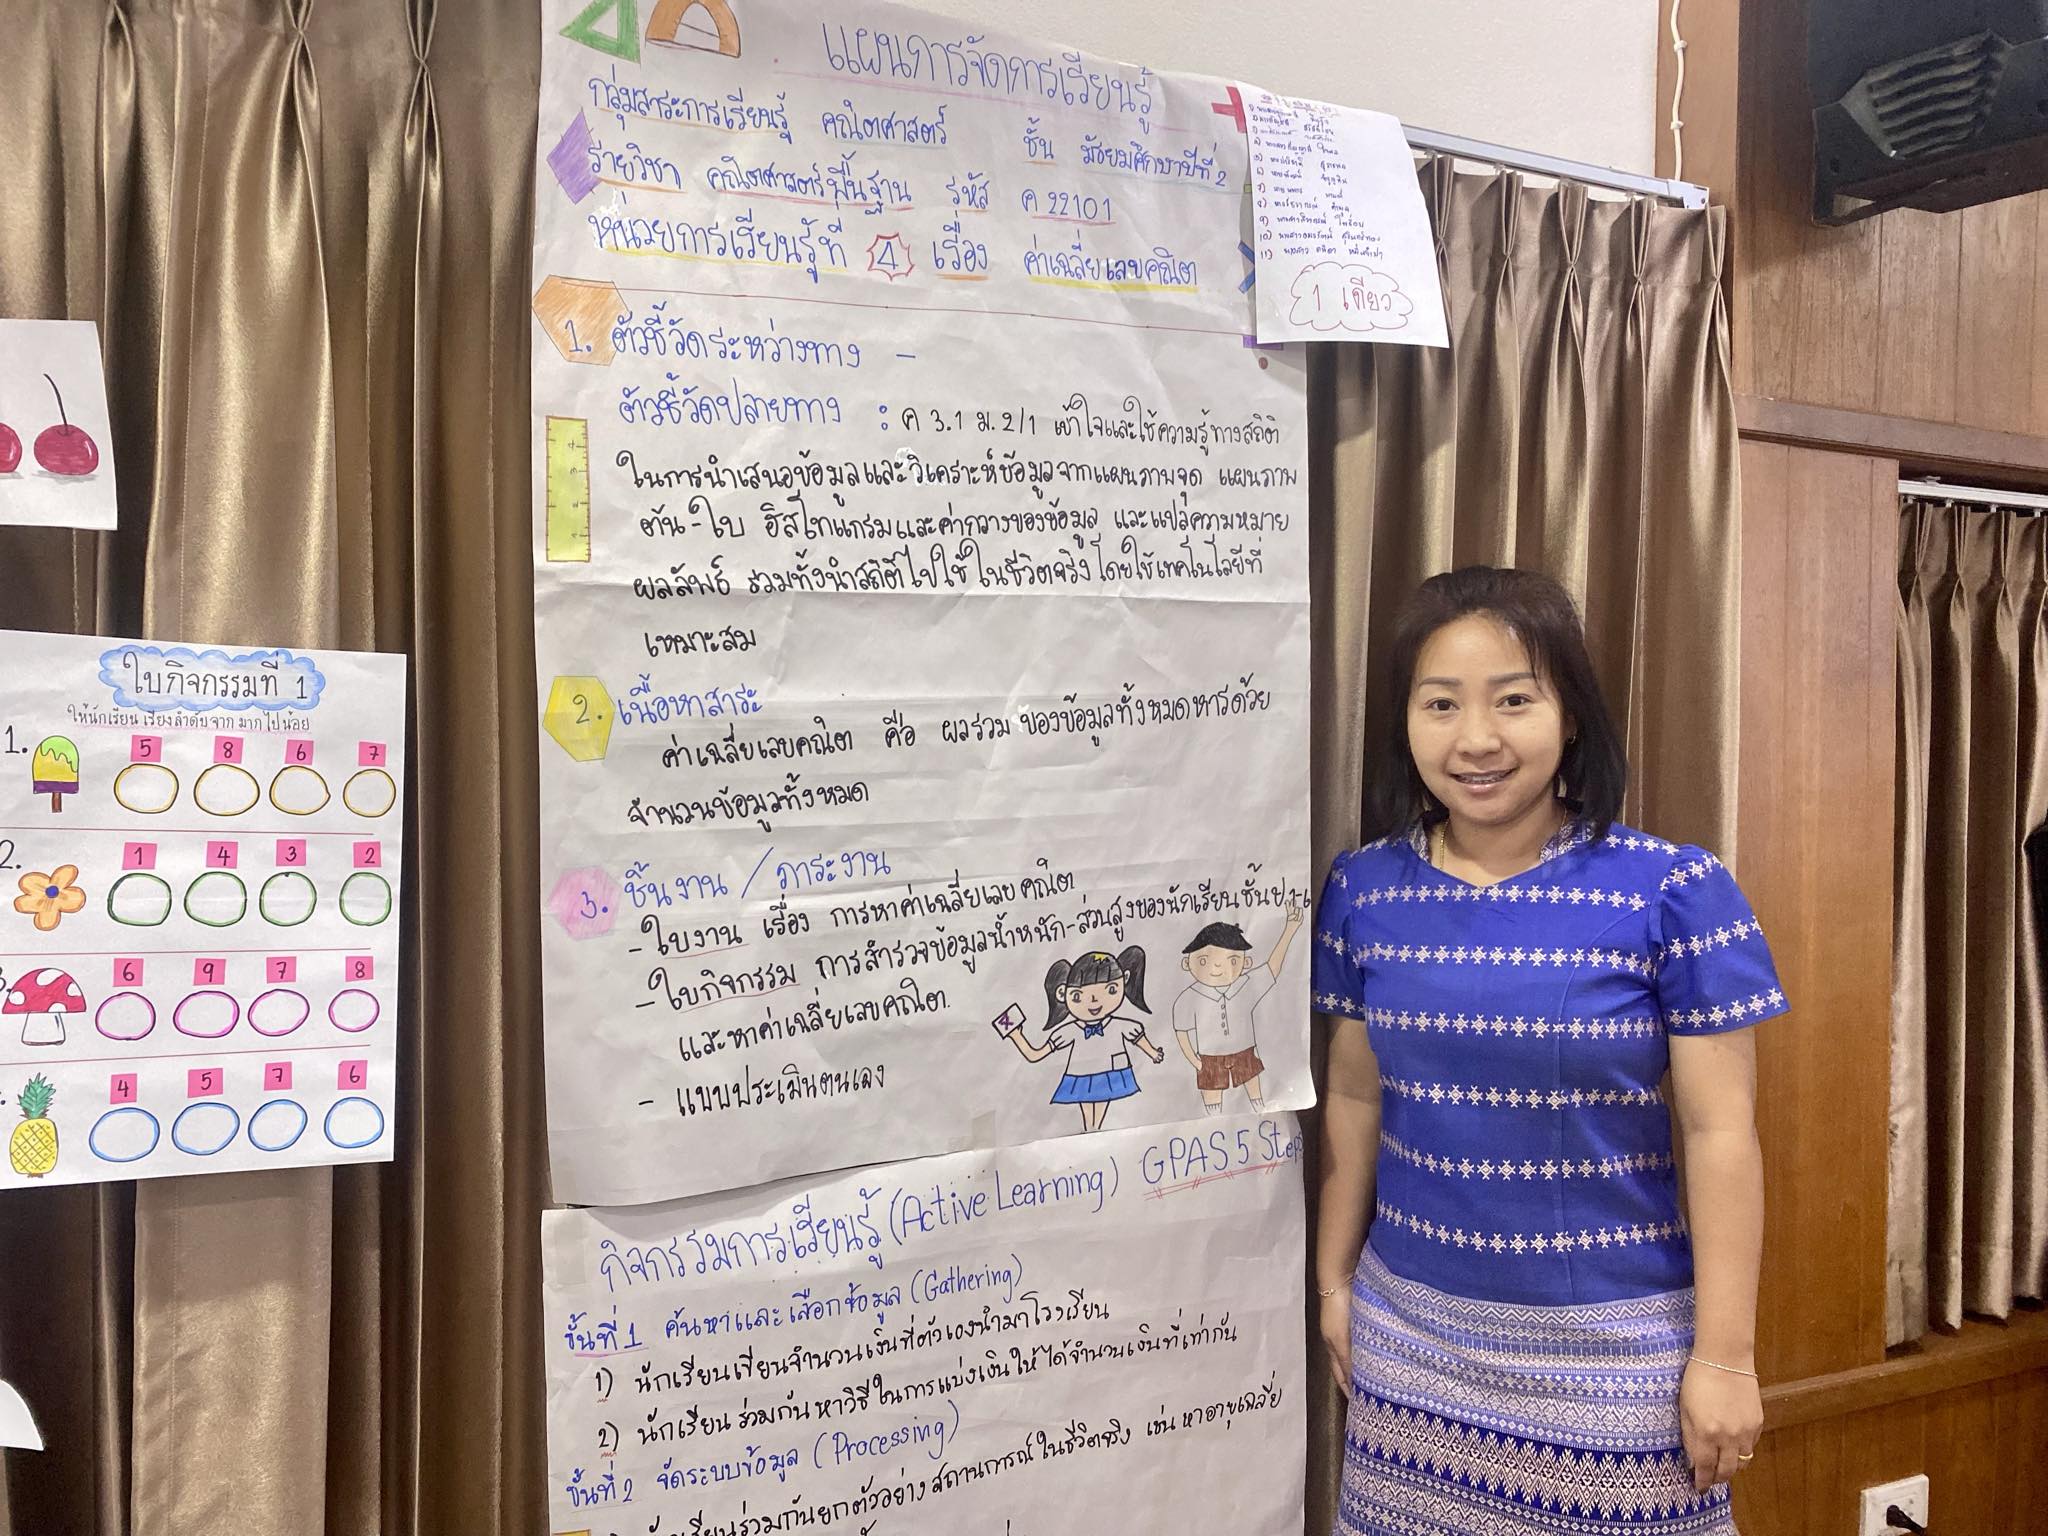 แผนการจัดการเรียนรู้
กลุ่มสาระการเรียนรู้ คณิตศาสตร์ ชั้น มัธยมศึกษาปีที่ 2
รายวิชา คณิตศาสตร์พื้นฐาน รหัส ค 22101
หน่วยการเรียนรู้ที่ 4 เรื่อง ค่าเฉลี่ยเลขคณิต
1. ตัวชี้วัดระหว่างทาง -
ตัวชี้วัดปลายทาง : ค 3.1 ม.2/1 เข้าใจและใช้ความรู้ทางสถิติ
ในการนำเสนอข้อมูลและวิเคราะห์ข้อมูลจากแผนภาพจุด แผนภาพ
ต้น-ใบ ฮิสโทแกรมและค่ากลางของข้อมูล และแปลความหมาย
ผลลัพธ์ รวมทั้งนำสถิติไปใช้ในชีวิตจริงโดยใช้เทคโนโลยีที่
เหมาะสม
2. เนื้อหาสาระ
ค่าเฉลี่ยเลขคณิต คือ ผลรวมของข้อมูลทั้งหมดหารด้วย
จำนวนข้อมูลทั้งหมด
3. ชิ้นงาน / ภาระงาน
- ใบงาน เรื่อง การหาค่าเฉลี่ยเลขคณิต
- ใบกิจกรรม การสำรวจข้อมูลน้ำหนัก-ส่วนสูงของนักเรียนชั้น
และหาค่าเฉลี่ยเลขคณิต
- แบบประเมินตนเอง
กิจกรรมการเรียนรู้ (Active Learning) GPAS 5 Steps
ขั้นที่ 1 ค้นหาและเลือกข้อมูล (Gathering)
1) นักเรียนเขียนจำนวนเงินที่ตัวเองนำมาโรงเรียน
2) นักเรียนร่วมกันหาวิธีในการแบ่งเงินให้ได้จำนวนเงินที่เท่ากัน
ขั้นที่ 2 จัดระบบข้อมูล (Processing)
นักเรียนร่วมกันยกตัวอย่างสถานการณ์ในชีวิตจริง เช่น หาอายุเฉลี่ย
1 เดียว
ใบกิจกรรมที่ 1
ให้นักเรียนเรียงลำดับจากมากไปน้อย
1. 5 8 6 7
2. 1 4 3 2
6 9 7 8
4 5 7 6